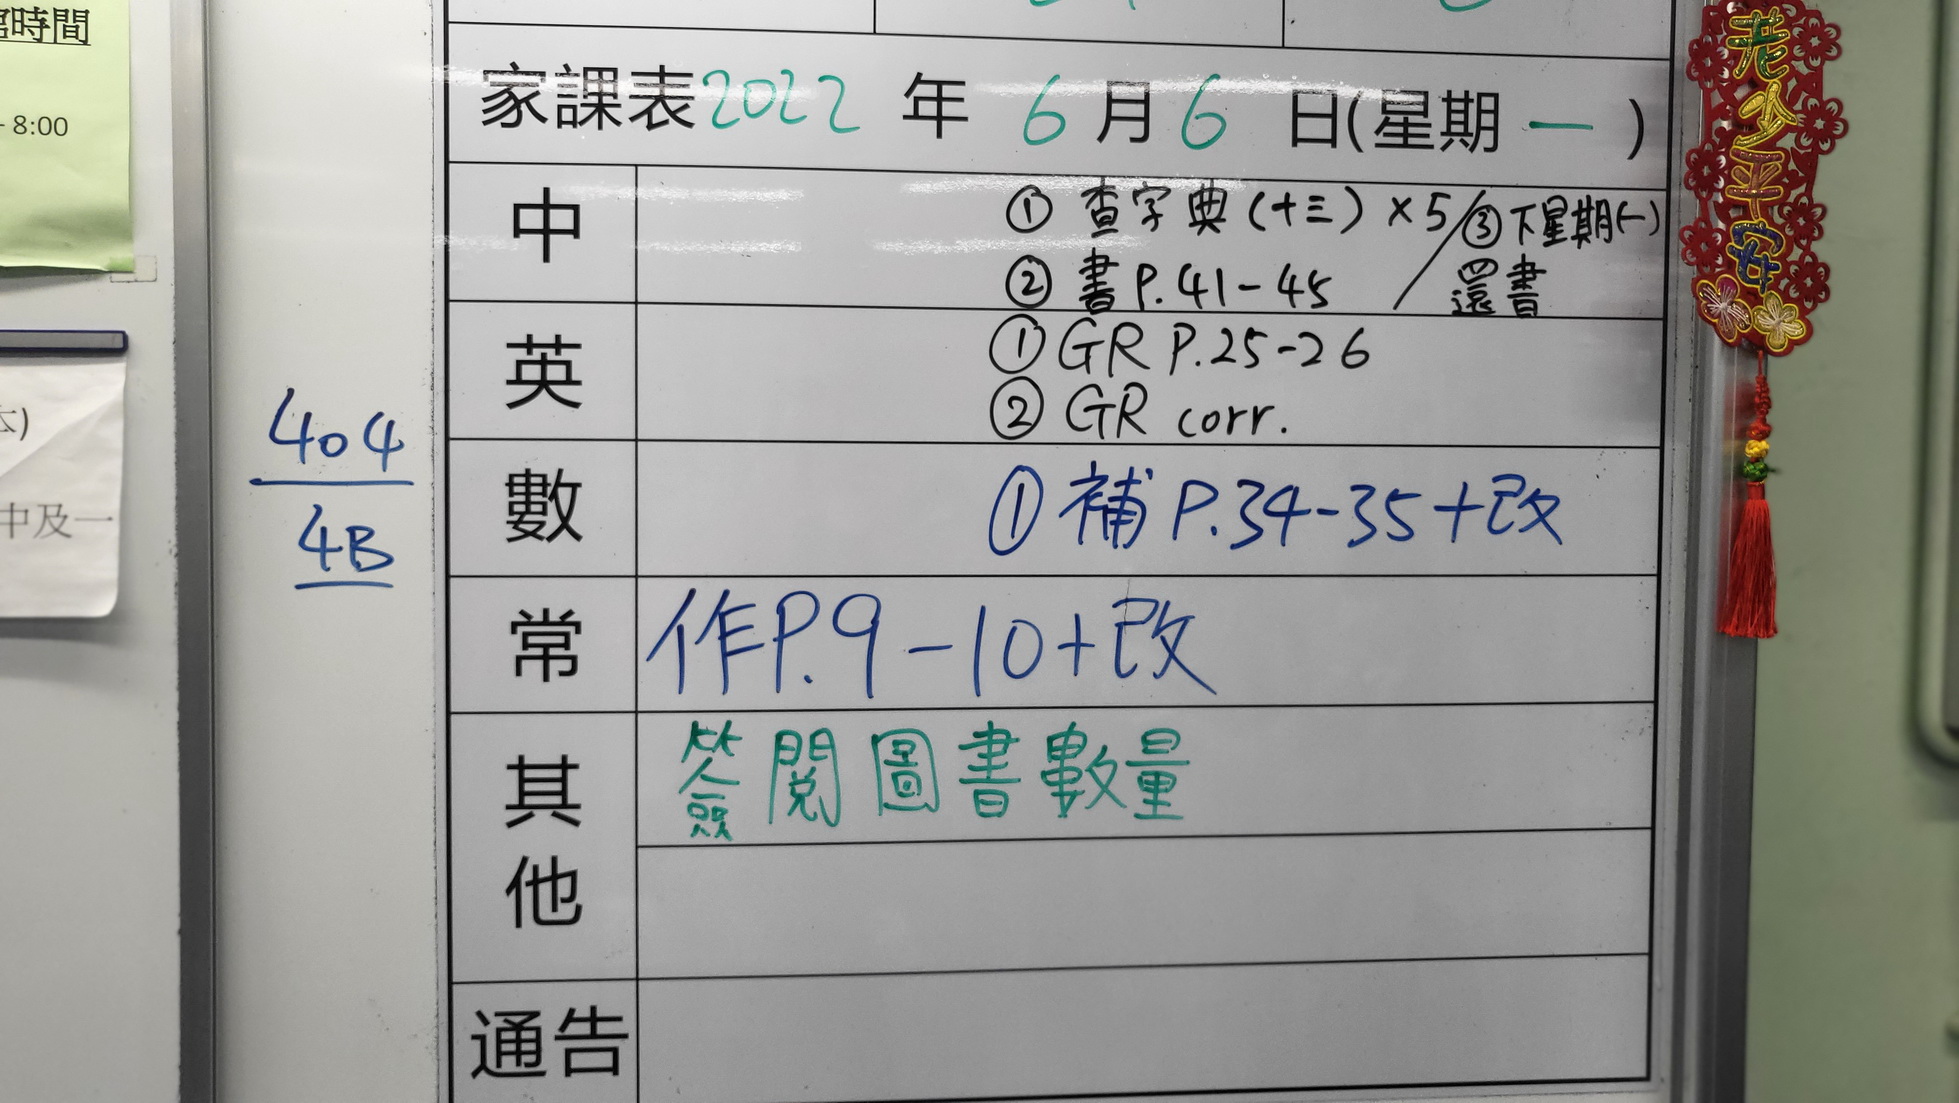 時間
- 8:00
本)
中及一
404
4B
家課表2022 年 6 月 6 日(星期 一 )
中
① 查字典(十三) × 5 / ③ 下星期(一)
② 書 P.41-45 / 還書
英
① GR P.25-26
② GR corr.
數
① 補 P.34-35+改
常
作P.9-10+改
其他
簽閱圖書數量
通告
老少平安